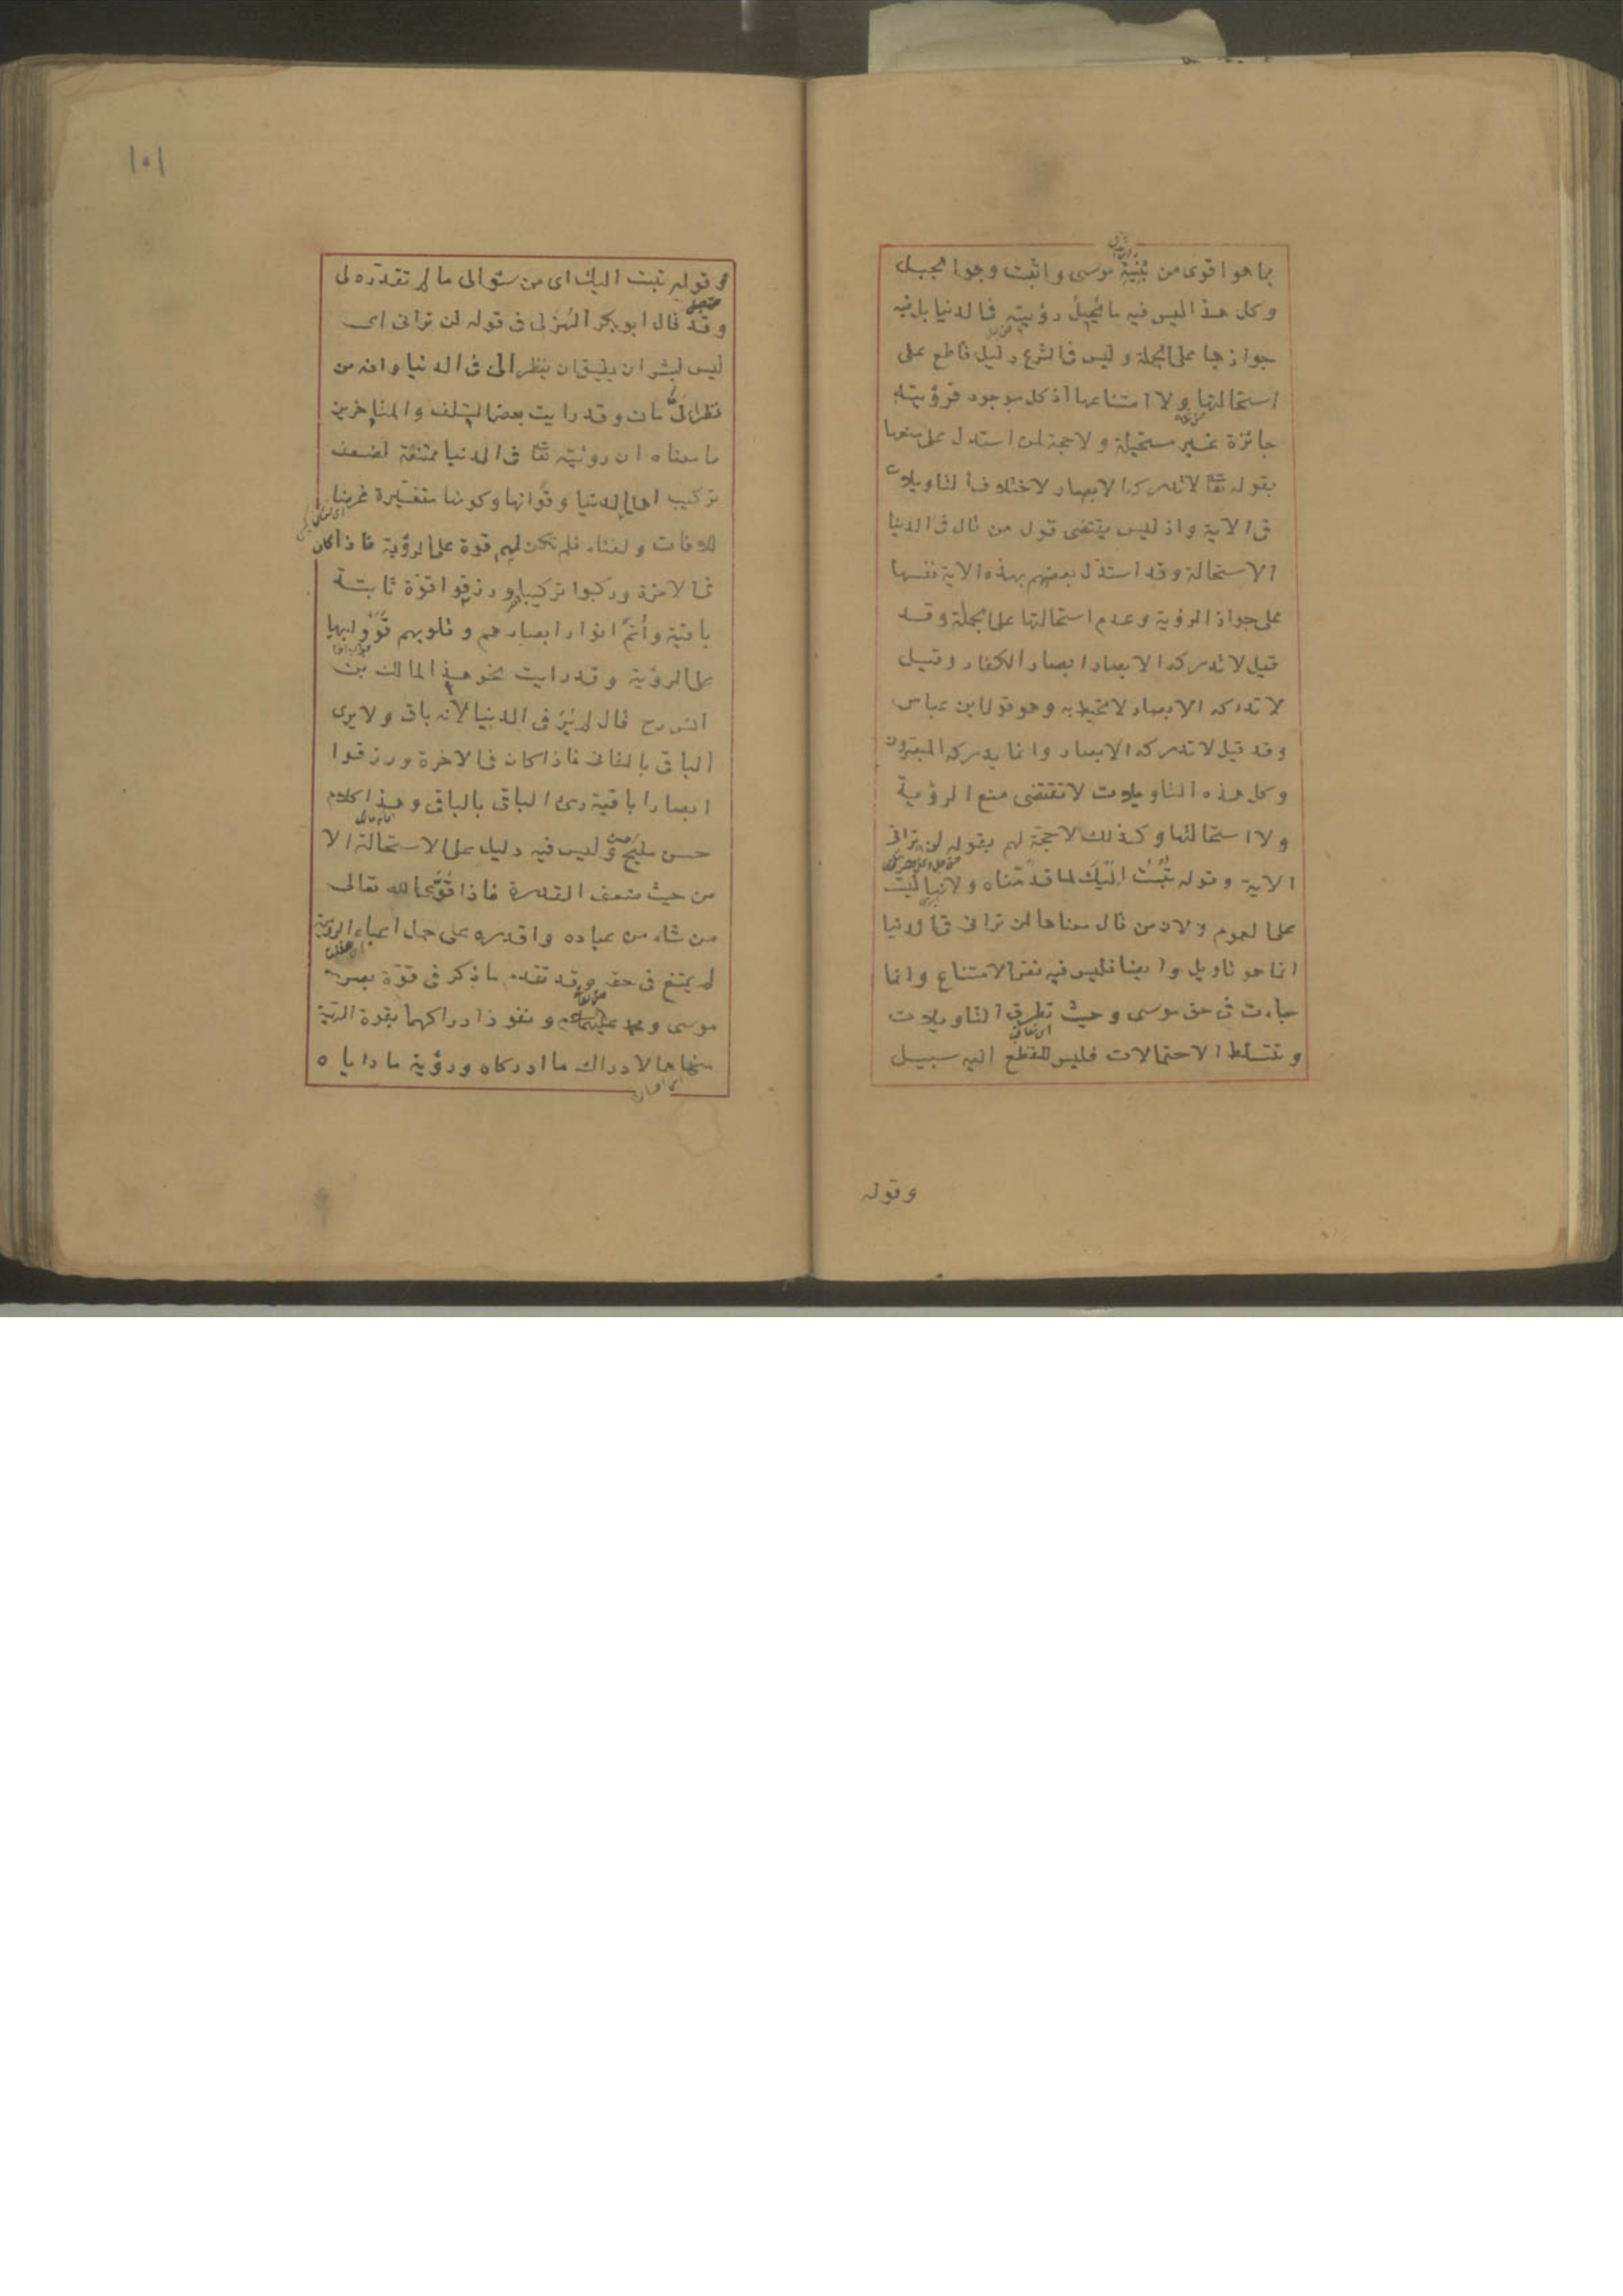 بما هو اقوى من بُنْيَةِ موسى واثبت وهو الجبل
وكل هذا ليس فيه ما يُحيلُ رؤيته فى الدنيا بل فيه
جوازها على الجملة وليس فى الشرع دليل قاطع على
استحالتها ولا امتناعها اذ كل موجود فرؤيته
جائزة غير مستحيلة ولا حجة لمن استدل على منعها
بقوله تعا لا تدركه الابصار لاختلاف التاويلات
فى الاية واذ ليس يقتضى قول من قال فى الدنيا
الاستحالة وقد استدل بعضهم بهذه الاية نفسها
على جواز الرؤية وعدم استحالتها على الجملة وقد
قيل لا تدركه الابصار ابصار الكفار وقيل
لا تدركه الابصار لا تحيط به وهو قول ابن عباس
وقد قيل لا تدركه الابصار وانما يدركه المبصرون
وكل هذه التاويلات لا تقتضى منع الرؤية
ولا استحالتها وكذلك لا حجة لهم بقوله لن ترانى
الاية وقوله تُبْتُ الَيْكَ لما قدّمناه ولانها ليست
على العموم ولان من قال معناها لن ترانى فى الدنيا
انما هو تاويل وايضا فليس فيه نص الامتناع وانما
جاءت فى حق موسى وحيث تطرق التاويلات
وتتسلط الاحتمالات فليس للقطع اليه سبيل
وقوله
١٥١
وقوله تبت اليك اى من سؤالى ما لم تقدّره لى
وقد قال ابو بكر الهُزلى فى قوله لن ترانى اى
ليس لبشر ان يطيق ان ينظر الىّ فى الدنيا وانه من
نظر الَىّ مات وقد رايت بعض السلف والمتاخرين
ما معناه ان رؤيته تعا فى الدنيا ممتنعة لضعف
تركيب اهل الدنيا وقُوَاها وكونها متغيّرة غرضا
للافات والفناء فلم تكن لهم قوة على الرؤية فاذا كان
فى الاخرة وركبوا تركيبا ورزقوا قوّة ثابتة
باقية وأُتمّ انوار ابصارهم وقلوبهم قَوُوا بها
على الرؤية وقد رايت نحو هذا لمالك بن
انس رح قال لم يُرَ فى الدنيا لانه باق ولا يرى
الباقى بالفانى فاذا كان فى الاخرة ورزقوا
ابصارا باقية رئ الباقى بالباقى وهذا كلام
حسن مليح وليس فيه دليل على الاستحالة الا
من حيث ضعف القدرة فاذا قَوَّى الله تعالى
من شاء من عباده واقدره على حمل اعباء الرؤية
لم يمتنع فى حقه وقد تقدم ما ذكر فى قوّة بصر
موسى ومحمد عليهما السلام ونفوذ ادراكهما بقوة الهية
منحاها لادراك ما ادركاه ورؤية ما راياه